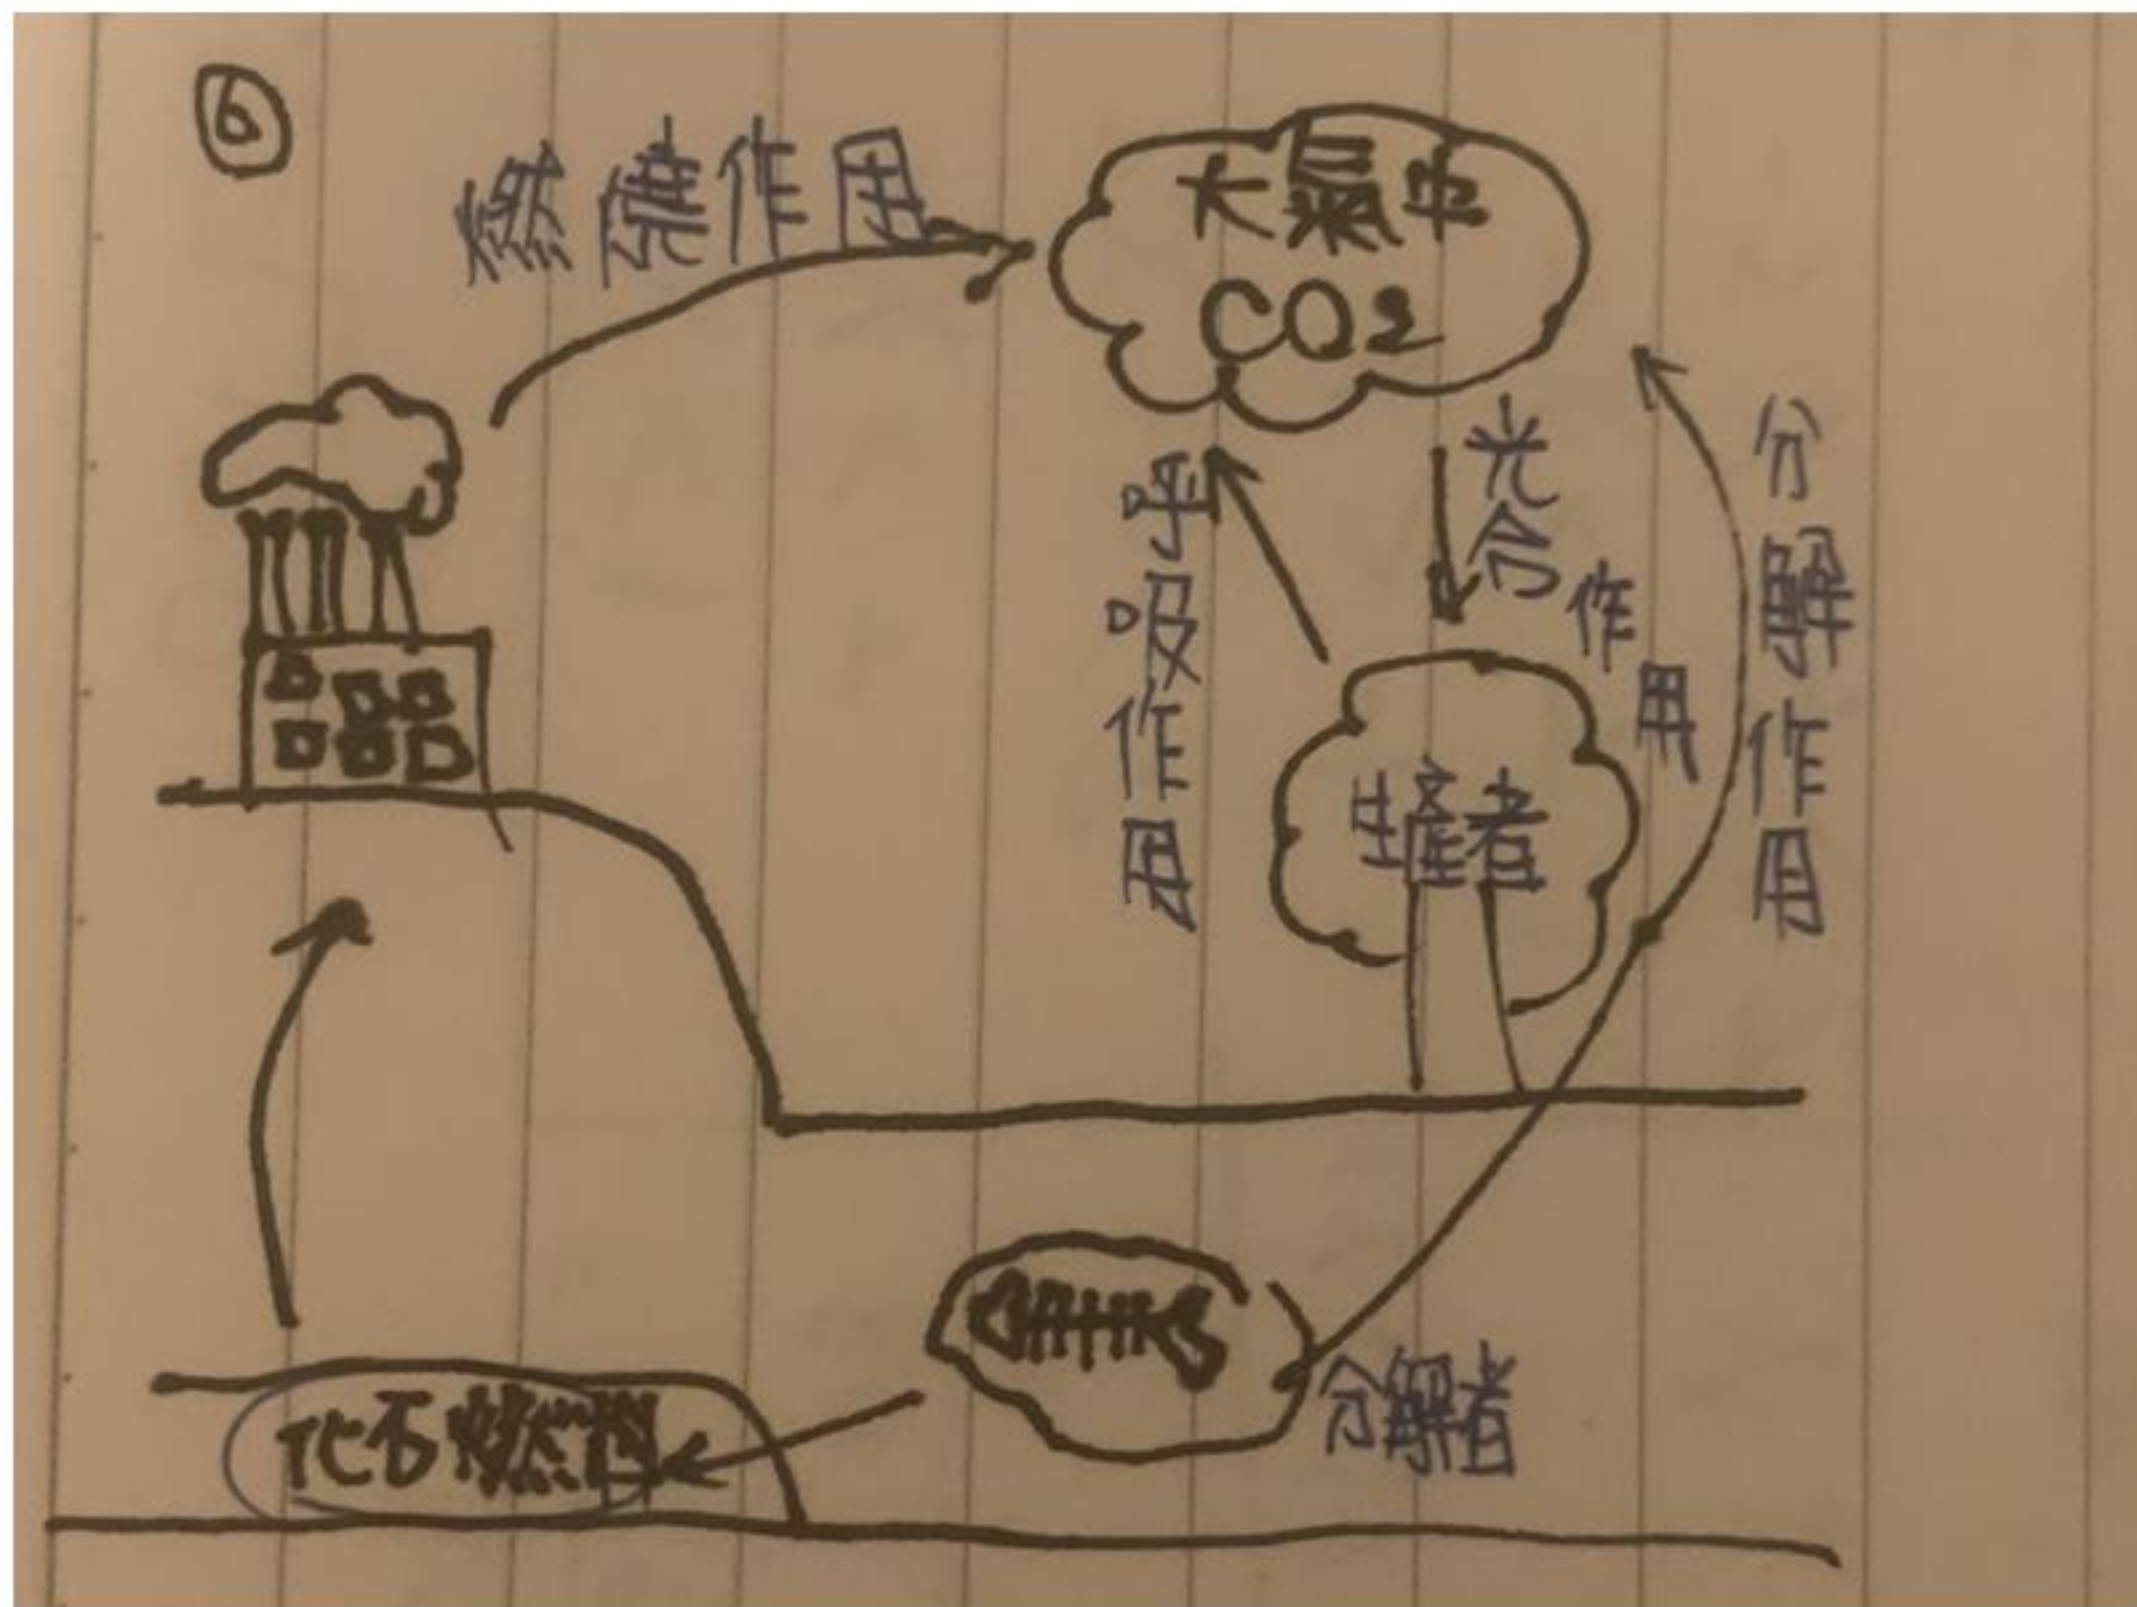 ⑥
燃燒作用
大氣中
CO2
光合作用
呼吸作用
分解作用
生產者
分解者
化石燃料